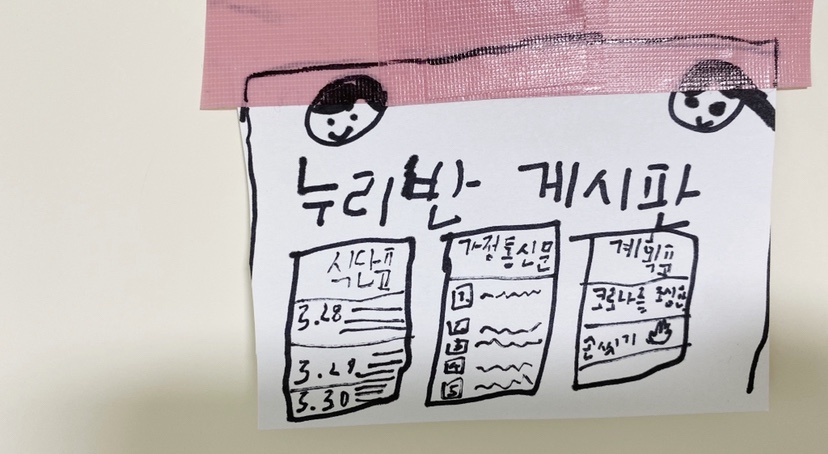 누리반 게시판
식단표
3.28
3.29
3.30
가정통신문
1.
2
3
4
5
계획표
코로나를 조심한
손씻기